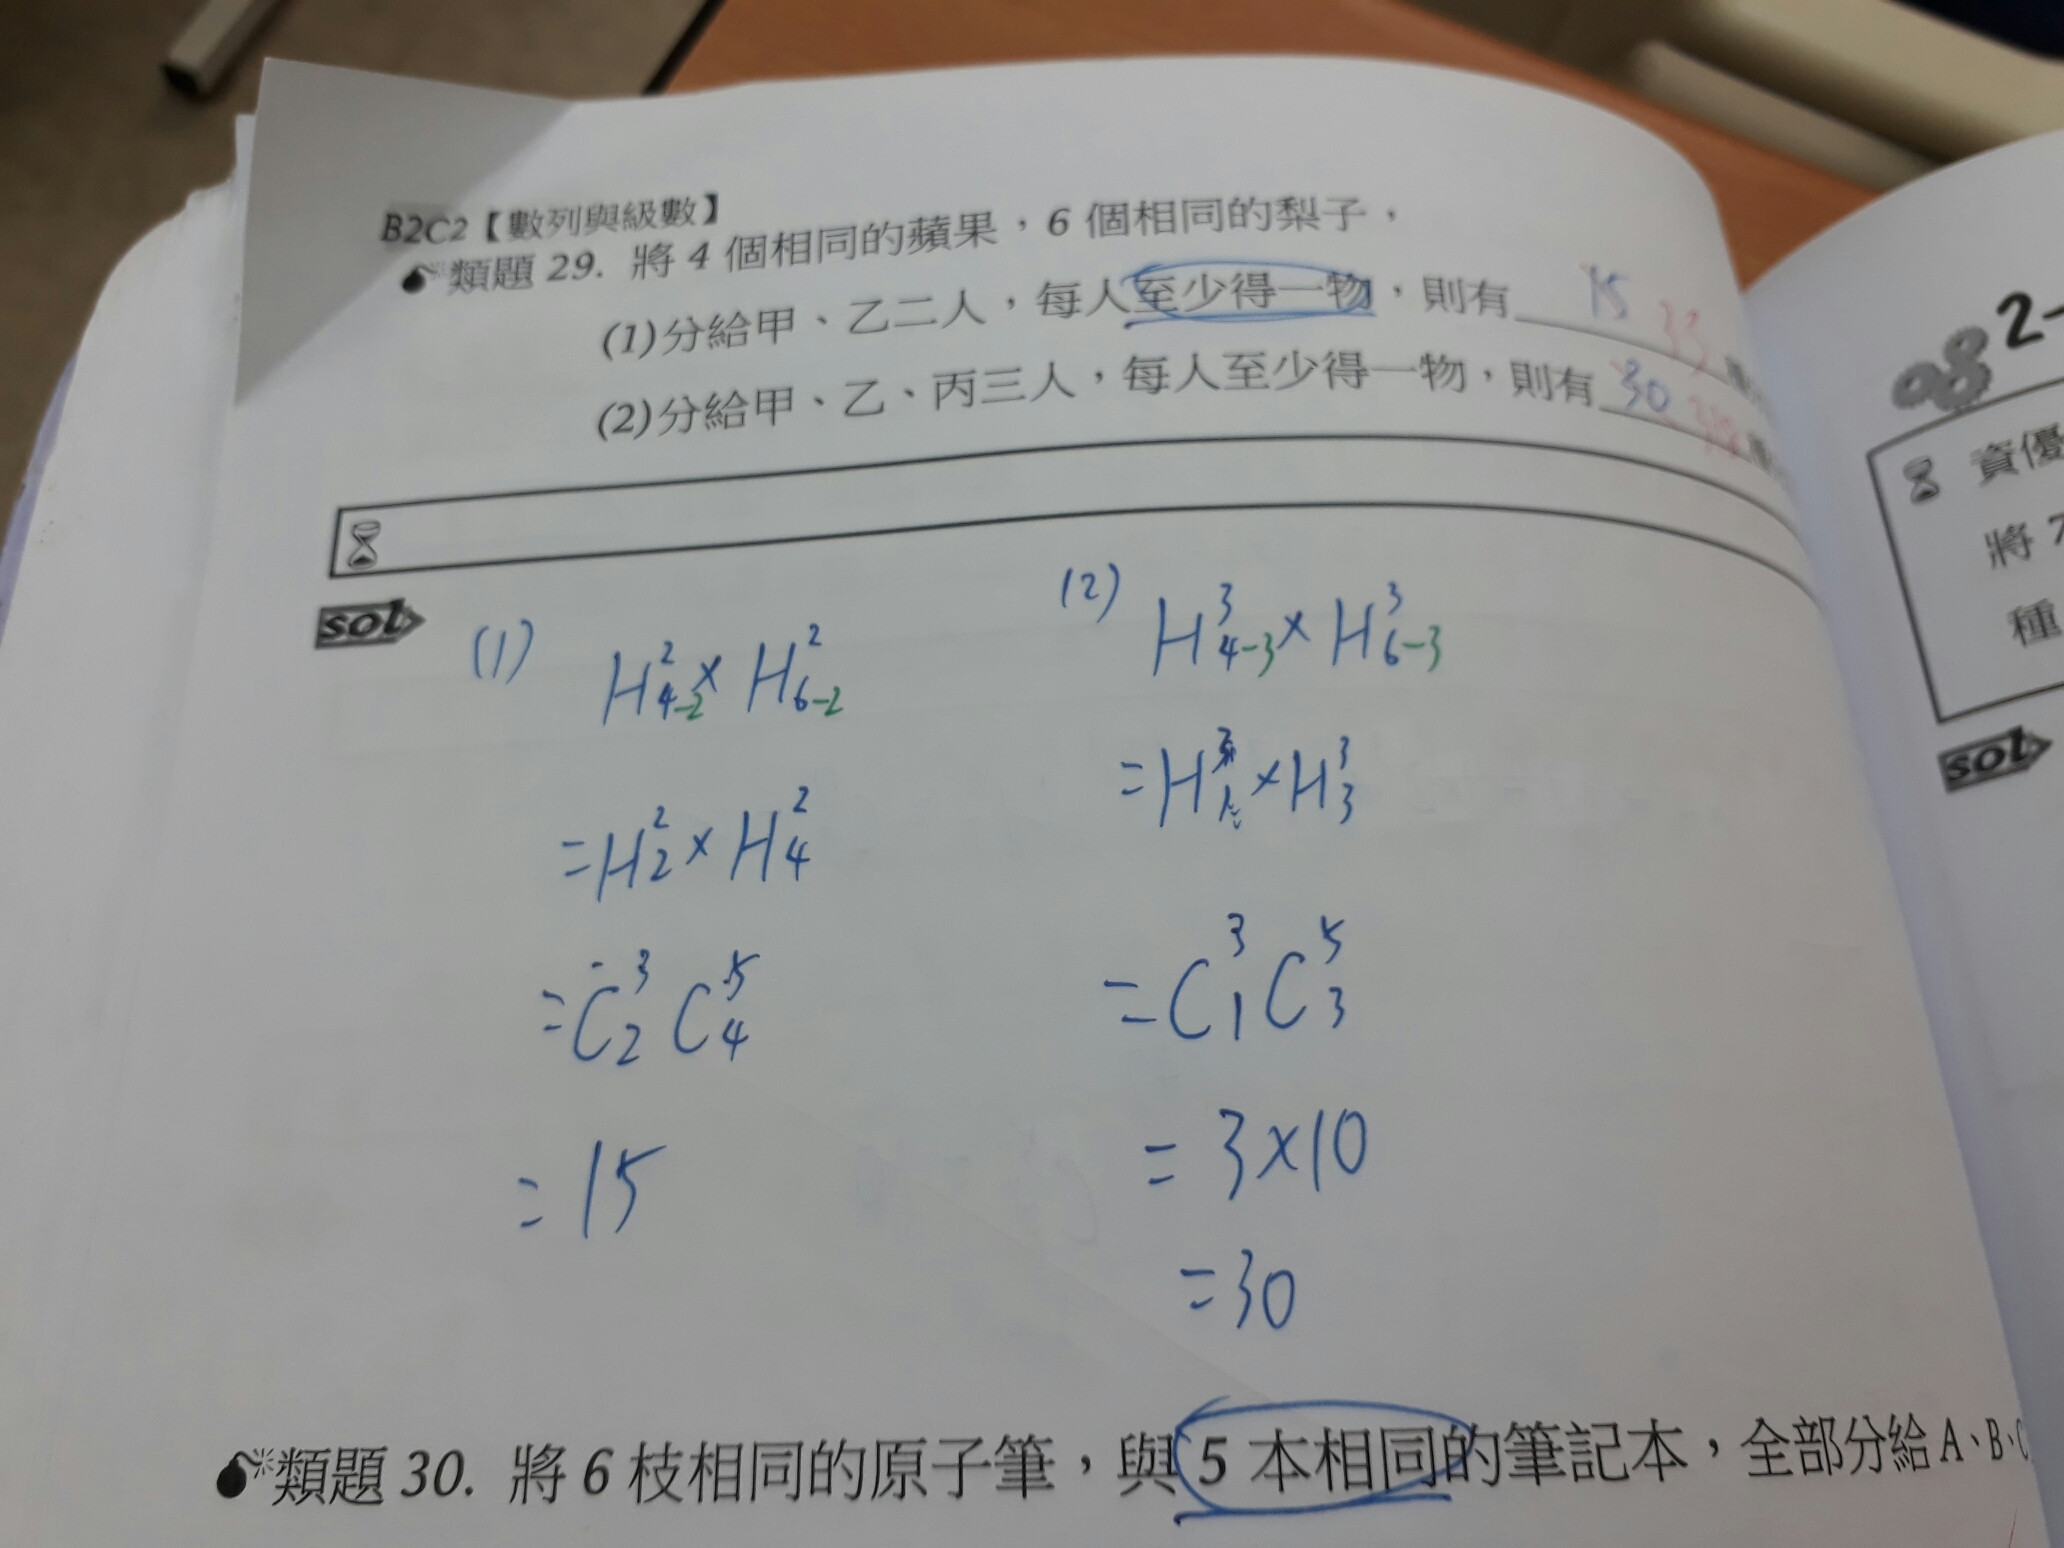 B2C2【數列與級數】
類題 29. 將 4 個相同的蘋果，6 個相同的梨子，
(1)分給甲、乙二人，每人至少得一物，則有 15 33
(2)分給甲、乙、丙三人，每人至少得一物，則有 30
sol
(1) H²₄₋₂ × H²₆₋₂
= H²₂ × H²₄
= C³₂ C⁵₄
= 15
(2) H³₄₋₃ × H³₆₋₃
= H³₁ × H³₃
= C³₁ C⁵₃
= 3×10
= 30
類題 30. 將 6 枝相同的原子筆，與 5 本相同的筆記本，全部分給 A、B、C
2-
資優
將 7
種
sol